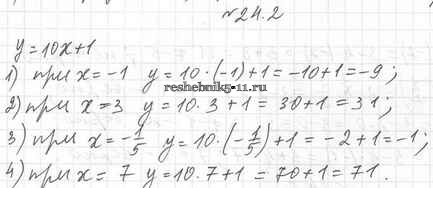 №24.2
y=10x+1
1) при x=-1 y=10·(-1)+1=-10+1=-9;
reshebnik5-11.ru
2) при x=3 y=10·3+1=30+1=31;
3) при x=-1/5 y=10·(-1/5)+1=-2+1=-1;
4) при x=7 y=10·7+1=70+1=71.